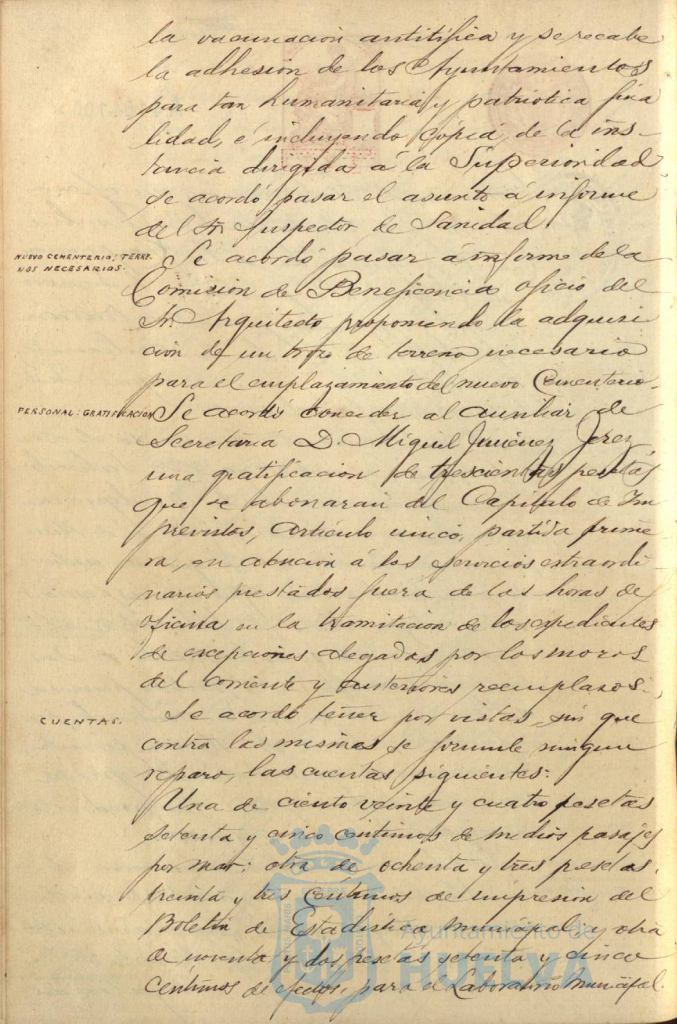 la vacunación antitífica y se recabe
la adhesión de los Ayuntamientos
para tan humanitaria y patriótica fina
lidad, é incluyendo copia de la ins-
tancia dirigida á la Superioridad
se acordó pasar el asunto á informe
del Sr. Inspector de Sanidad.
NUEVO CEMENTERIO; TERRE-
NOS NECESARIOS.
Se acordó pasar á informe de la
Comisión de Beneficencia oficio del
Sr. Arquitecto proponiendo la adquisi
ción de un trozo de terreno necesario
para el emplazamiento del nuevo Cementerio.
PERSONAL: GRATIFICACION
Se acordó conceder al auxiliar de
Secretaría D. Miguel Jiménez Jerez
una gratificación de trescientas pesetas
que se abonarán del Capítulo de Im
previstos, Artículo único, partida prime
ra, en atención á los servicios extraordi
narios prestados fuera de las horas de
oficina en la tramitación de los expedientes
de excepciones alegadas por los mozos
del corriente y anteriores reemplazos.
CUENTAS.
Se acordó tener por vistas, sin que
contra las mismas se formule ningun
reparo, las cuentas siguientes:
Una de ciento veinte y cuatro pesetas
setenta y cinco céntimos de medios pasajes
por mar; otra de ochenta y tres pesetas
treinta y tres céntimos de impresión del
Boletín de Estadística municipal y otra
de noventa y dos pesetas setenta y cinco
céntimos de efectos para el Laboratorio Municipal.
Ayuntamiento de
HUELVA